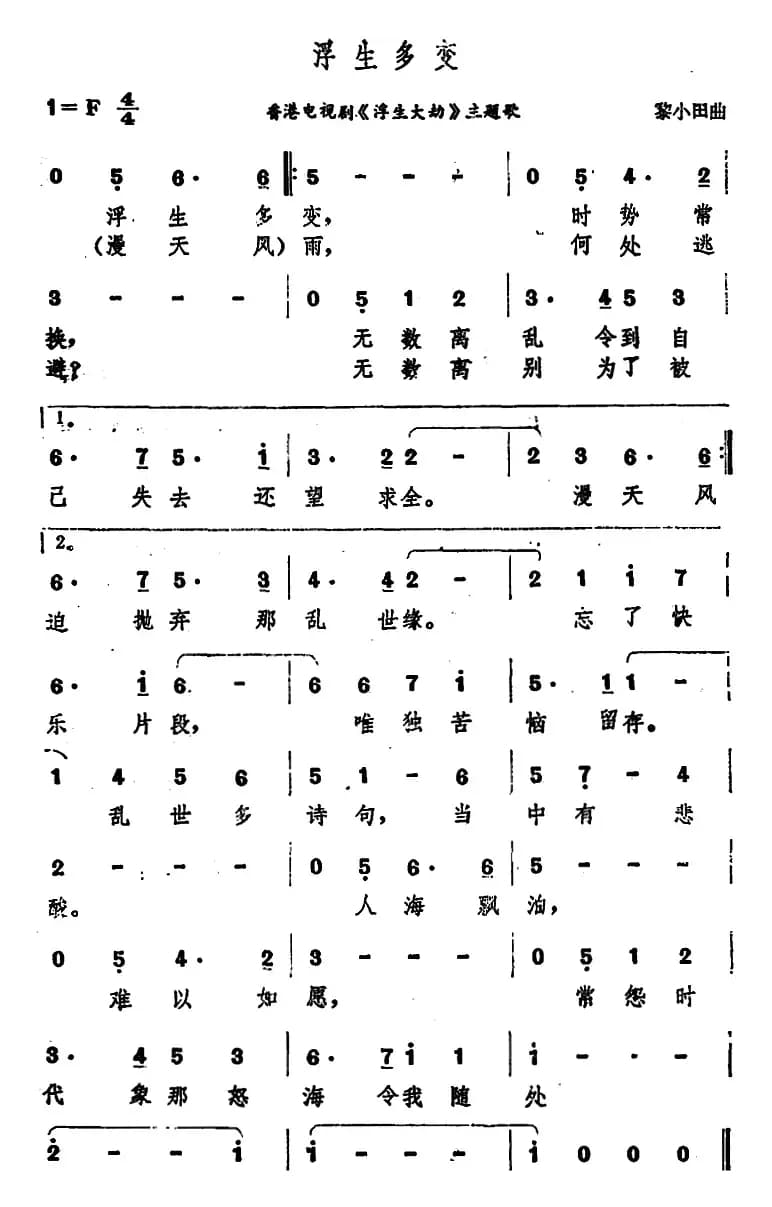 浮生多变
1=F 4/4 香港电视剧《浮生大劫》主题歌 黎小田曲
0 5̣ 6· 6̲ 𝄆 5 - - - | 0 5̣ 4· 2̲ |
浮 生 多 变， 时 势 常
（漫 天 风）雨， 何 处 逃
3 - - - | 0 5̣ 1 2 | 3· 4̲ 5 3 |
换， 无 数 离 乱 令 到 自
避？ 无 数 离 别 为 了 被
1。
6· 7̲ 5· i̲ | 3· 2̲ 2 - | 2 3 6· 6̲ 𝄇
己 失 去 还 望 求 全。 漫 天 风
2。
6· 7̲ 5· 3̲ | 4· 4̲ 2 - | 2 1 i 7 |
迫 抛 弃 那 乱 世 缘。 忘 了 快
6· i̲ 6 - | 6 6 7 i | 5· 1̲ 1 - |
乐 片 段， 唯 独 苦 恼 留 存。
1 4 5 6 | 5 1 - 6 | 5 7̣ - 4 |
乱 世 多 诗 句， 当 中 有 悲
2 - - - | 0 5̣ 6· 6̲ | 5 - - - |
酸。 人 海 飘 泊，
0 5̣ 4· 2̲ | 3 - - - | 0 5̣ 1 2 |
难 以 如 愿， 常 怨 时
3· 4̲ 5 3 | 6· 7̲ i 1 | i - - - |
代 象 那 怒 海 令 我 随 处
2̇ - - i | i - - - | i 0 0 0 ‖